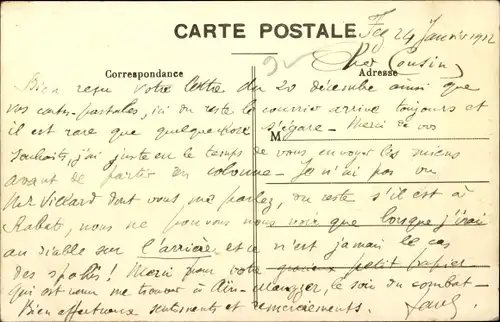 CARTE POSTALE
Fez 24 Janvier 1912
Correspondance
Adresse
M
Cher Cousin,
Bien reçu votre lettre du 20 décembre ainsi que
vos cartes-postales, ici du reste le courrier arrive toujours et
il est rare que quelque chose s'égare - Merci de vos
souhaits, j'ai juste eu le temps de vous envoyer les miens
avant de partir en colonne - Je n'ai pas vu
Mr Villard dont vous me parlez, du reste s'il est à
Rabat, nous ne pouvons nous voir que lorsque j'irai
au diable sur l'arrière et ce n'est jamais le cas
des spahis! Merci pour votre gracieux petit papier
qui est venu me trouver à Aïn-, le soir du combat -
Bien affectueux sentiments et remerciements.